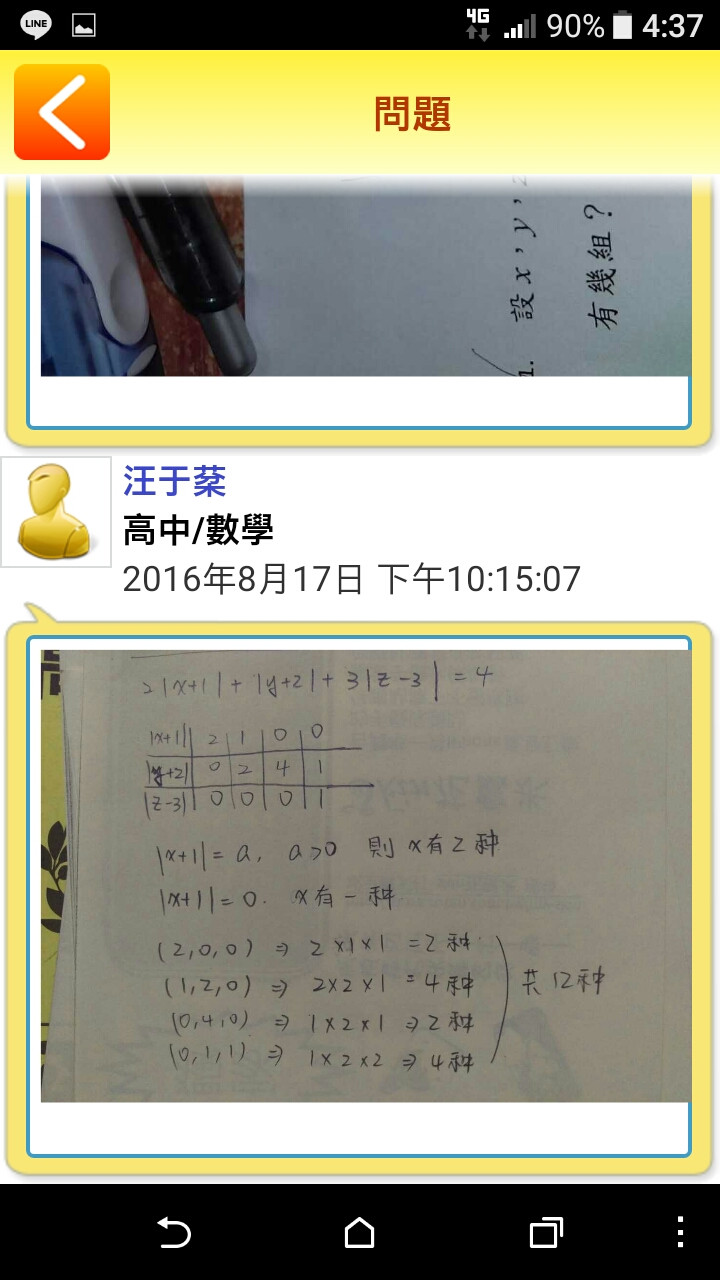 LINE
4G 90% 4:37
問題
設x,y,z
有幾組?
汪于蔾
高中/數學
2016年8月17日 下午10:15:07
2|x+1|+|y+2|+3|z-3|=4
|x+1| 2 1 0 0
|y+2| 0 2 4 1
|z-3| 0 0 0 1
|x+1|=a, a>0 則x有2种
|x+1|=0. x有一种
(2,0,0) ⇒ 2×1×1 =2种
(1,2,0) ⇒ 2×2×1 =4种 共12种
(0,4,0) ⇒ 1×2×1 ⇒2种
(0,1,1) ⇒ 1×2×2 ⇒4种